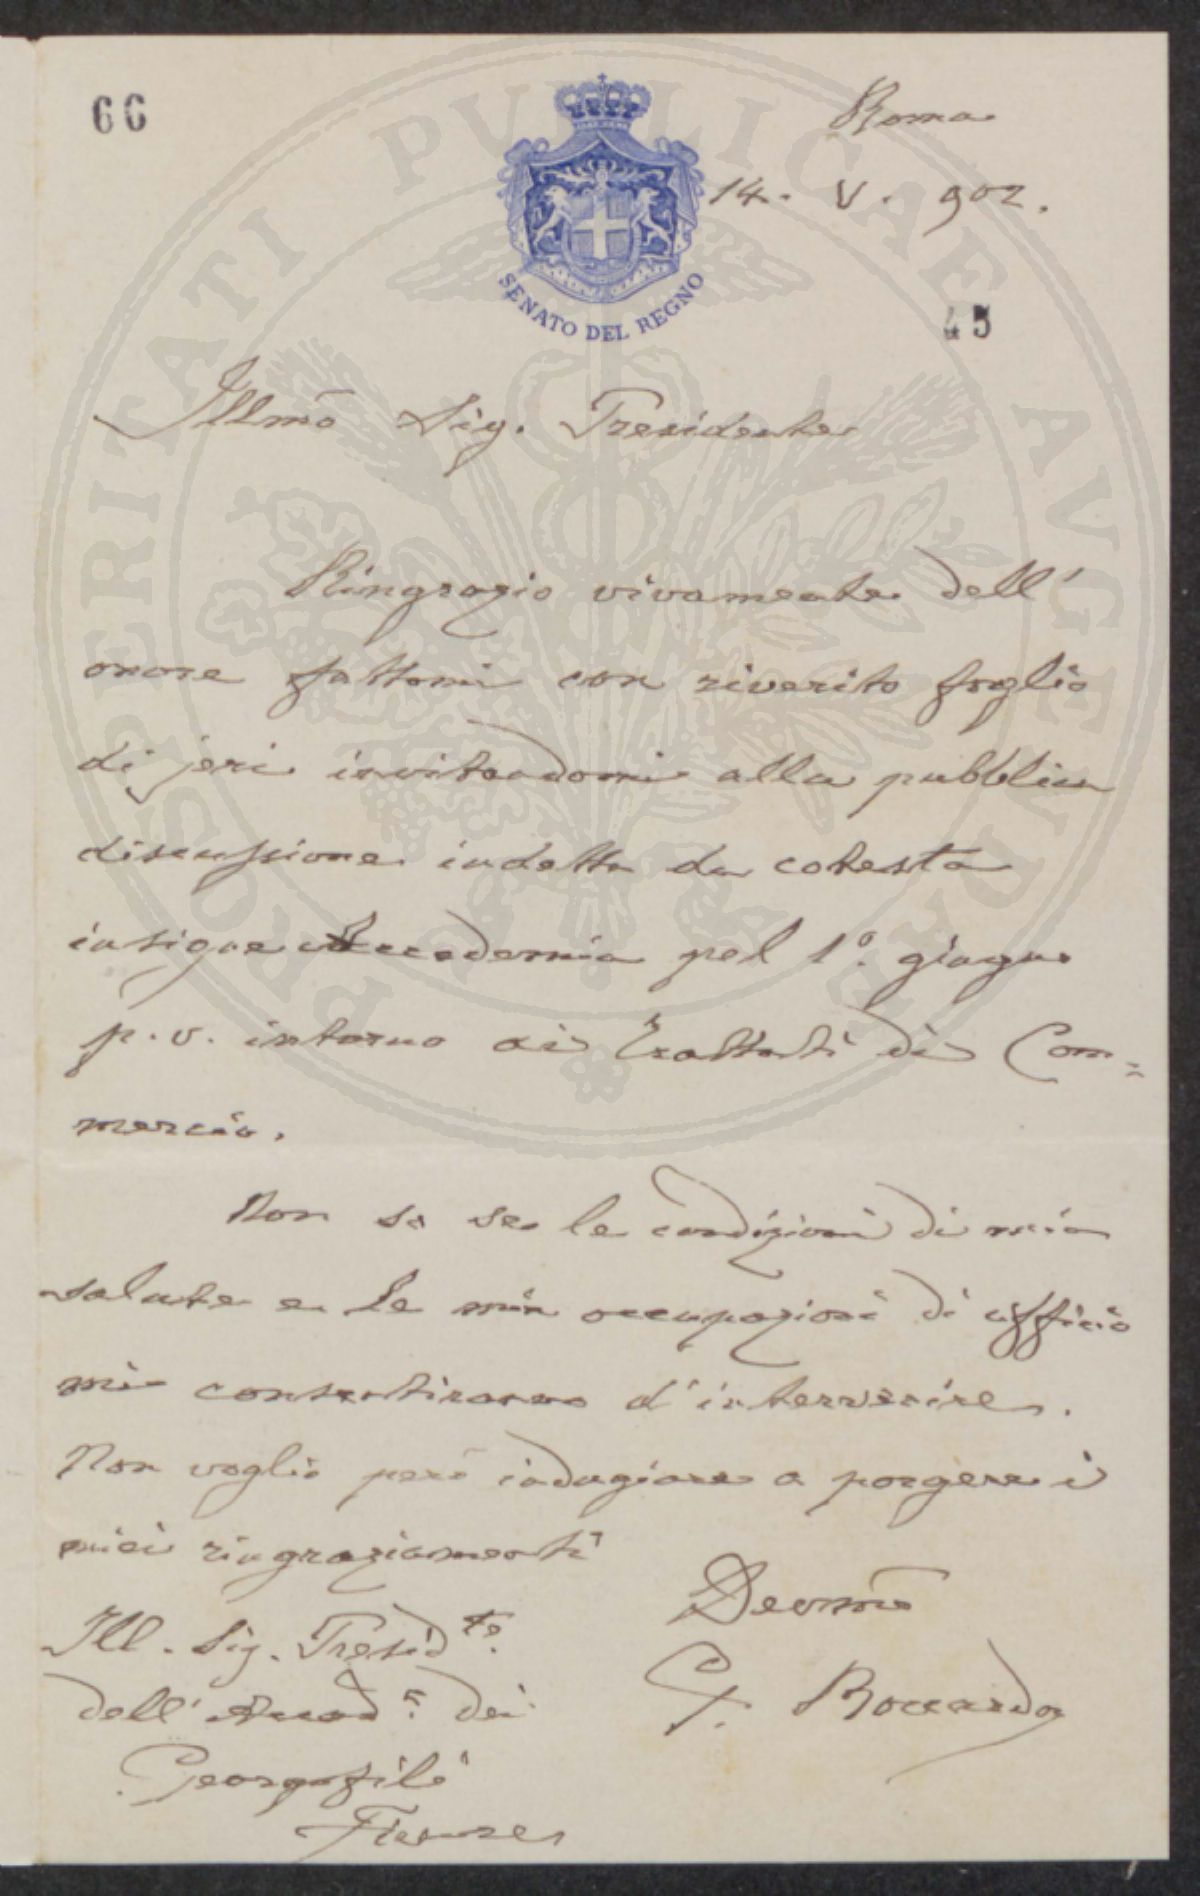 66
Roma
14. V. 902.
SENATO DEL REGNO
45
PROSPERITATI PUBLICAE AVGENDAE
Illmo Sig. Presidente
Ringrazio vivamente dell'
onore fattomi con riverito foglio
di jeri invitandomi alla pubblica
discussione indetta da cotesta
insigne Accademia pel 1º. giugno
p. v. intorno ai Trattati di Com=
mercio.
Non so se le condizioni di mia
salute e le mie occupazioni di ufficio
mi consentiranno d'intervenire.
Non voglio però indugiare a porgere i
miei ringraziamenti
Devmo
G. Boccardo
Ill. Sig. Presidte.
dell'Accada. dei
Georgofili
Firenze